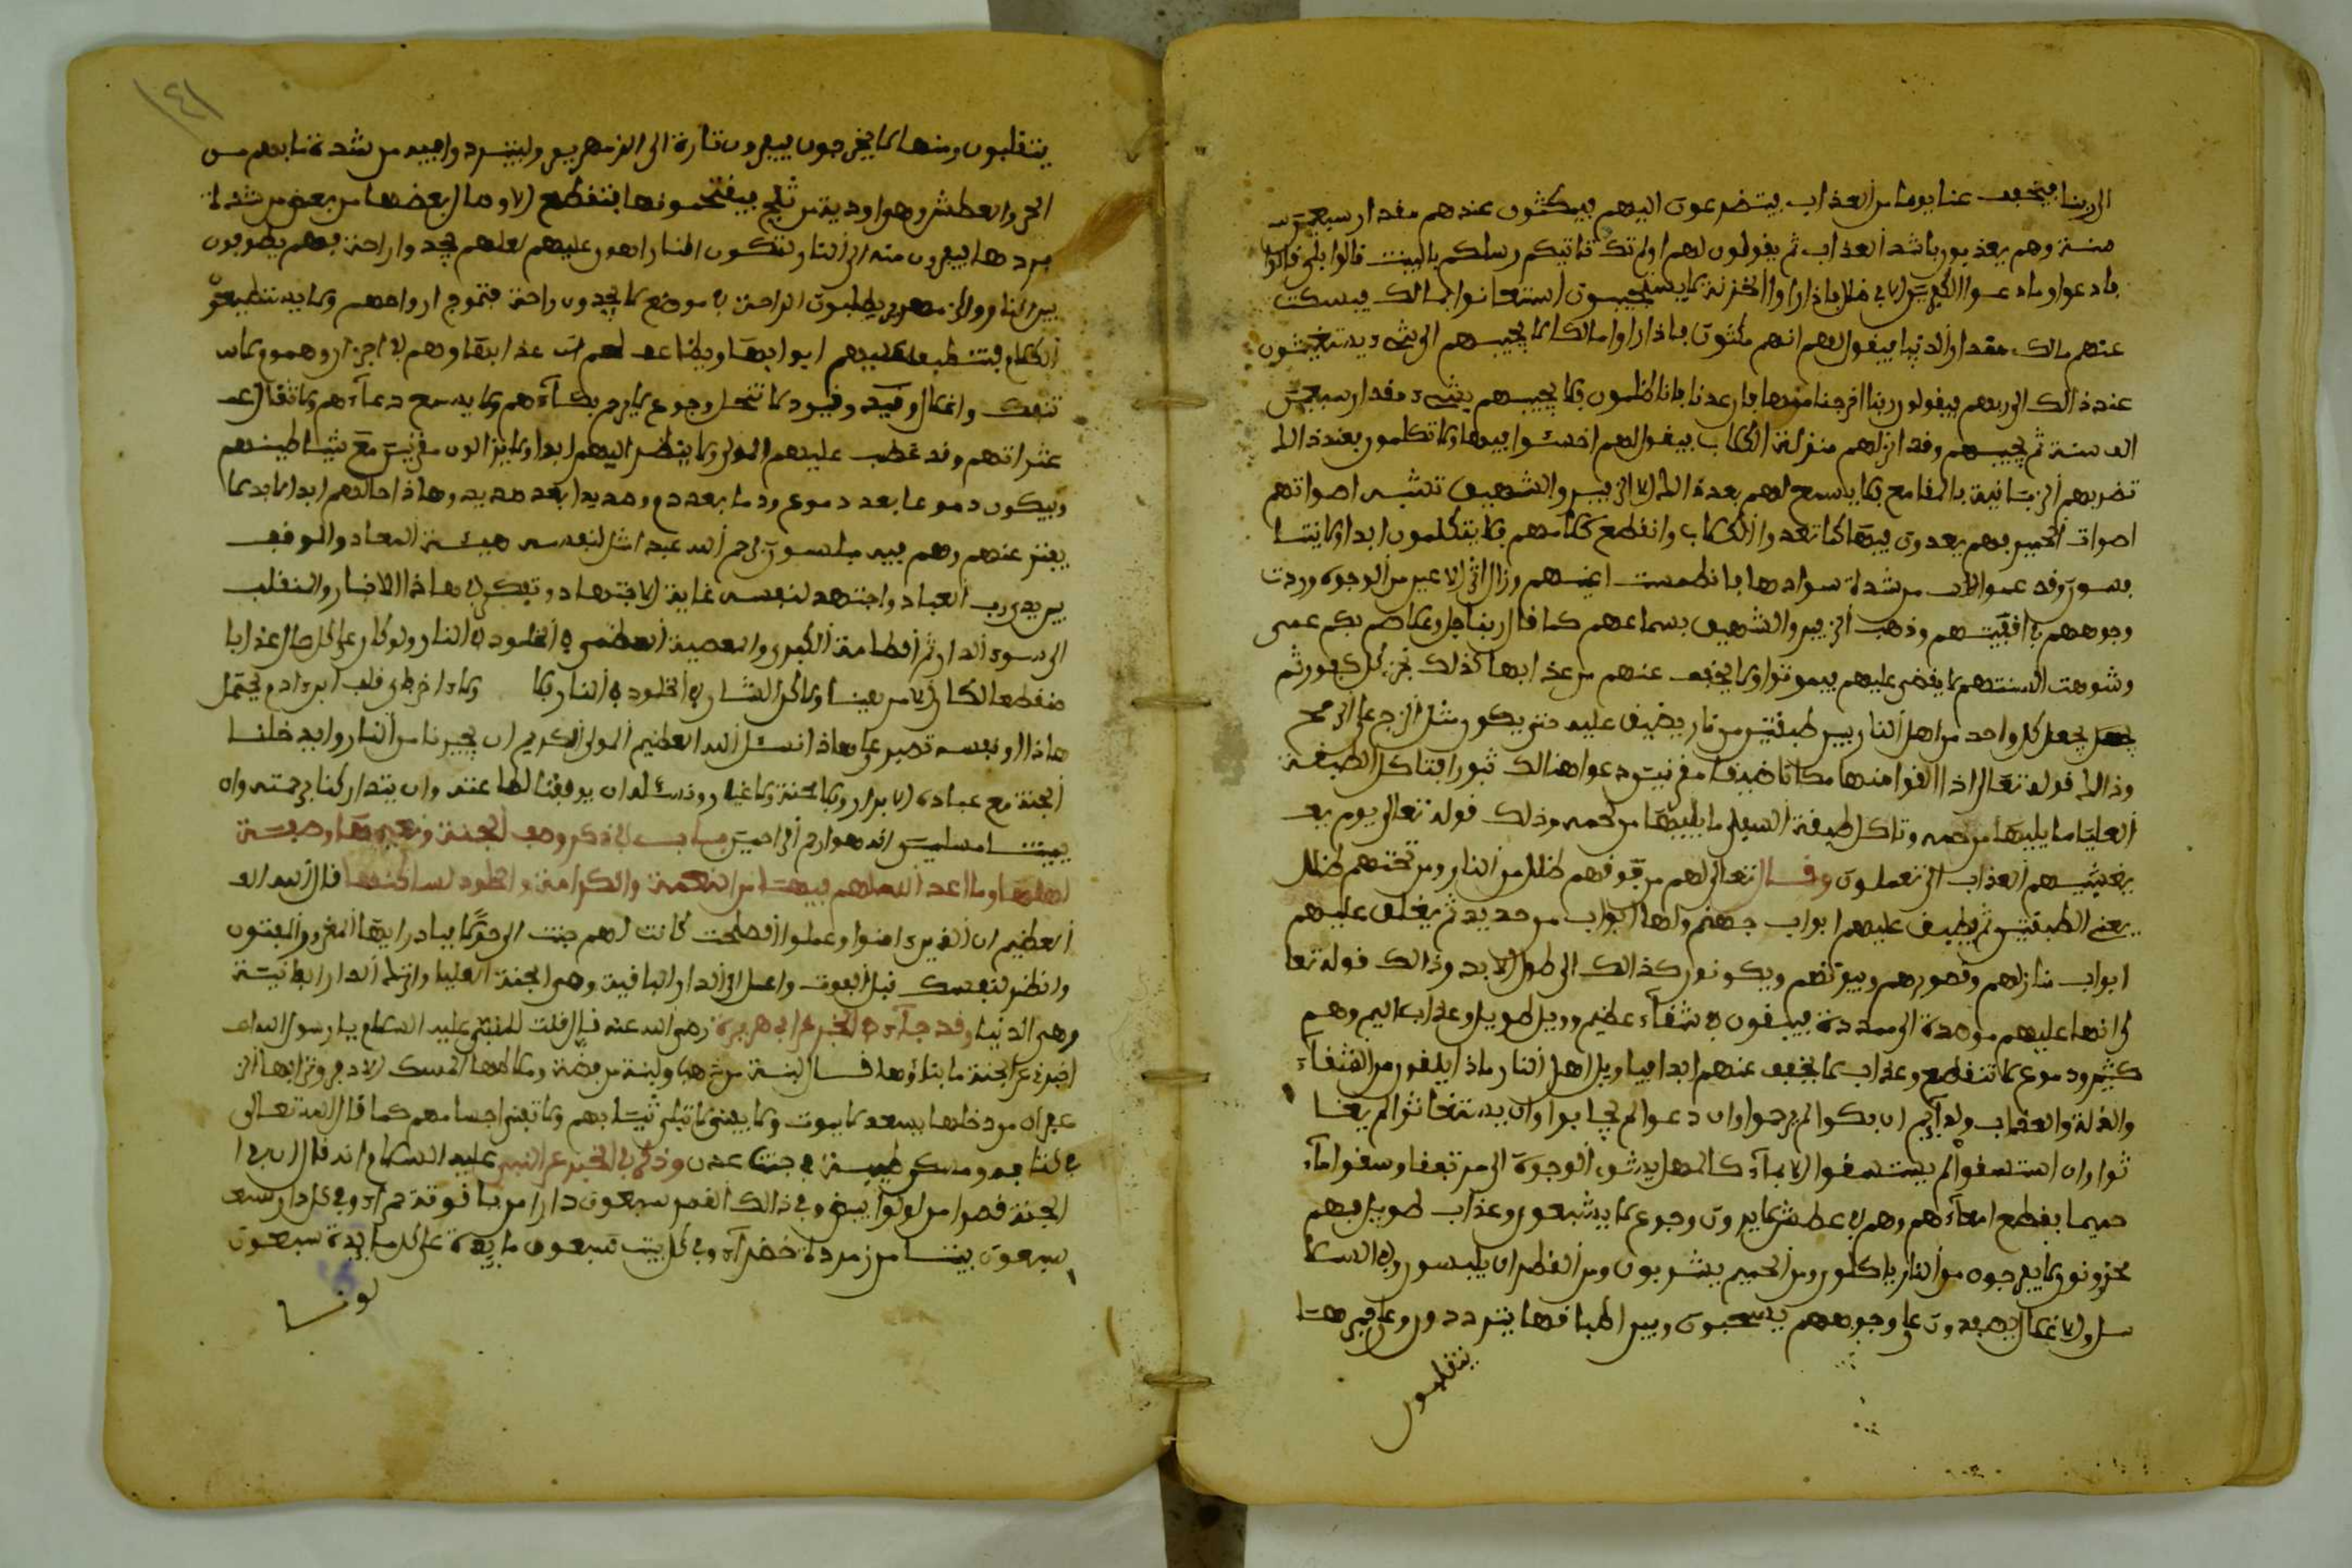 الى ربنا فيخفف عنا يوما من العذاب فيتضرعون اليهم فيمكثون عندهم مقدار سبعين
سنة وهم يعذبون باشد العذاب ثم يقولون لهم اولم تك تاتيكم رسلكم بالبينت قالوا بلى قالوا
فادعوا وما دعوا الكفرين الا في ضلل فاذا راوا الخزنة لا يستجيبون استغاثوا بمالك فيسكت
عنهم مالك مقدار الدنيا فيقول لهم انهم ماكثون فاذا راوا مالكا لا يجيبهم الى شيء يستغيثون
عند ذالك الى ربهم فيقولون ربنا اخرجنا منها فان عدنا فانا ظلمون فلا يجيبهم بشيء مقدار سبعين
الف سنة ثم يجيبهم وقد انزلهم منزلة الكلاب فيقول لهم اخسئوا فيها ولا تكلمون فعند ذالك
تضربهم الزبانية بالمقامع فلا يسمع لهم بعد ذالك الا الزفير والشهيق تشبه اصواتهم
اصوات الحمير فهم يعدون فيها كما تعدوا الكلاب وانقطع كلامهم فلا يتكلمون ابدا ولا يتنا
فسون وقد عموا من شدة سوادها فانطمست اعينهم وزال اثر الاعين من الوجوه وردت
وجوههم في افقيتهم وذهب الزفير والشهيق بسماعهم كما قال ربنا جل وعلا صم بكم عمي
وشوهت السنتهم لا يقضى عليهم فيموتوا ولا يخفف عنهم من عذابها كذلك نجزي كل كفور ثم
يجعل كل واحد من اهل النار بين طبقتين من نار يضيق عليه حتى يكون مثل الزج على الرمح
وذالك قوله تعالى اذا القوا منها مكانا ضيقا مقرنين دعوا هنالك ثبورا فتاكل الطبقة
العليا ما يليها من لحمه وتاكل طبقة السفلى ما يليها من لحمه وذلك قوله تعالى يوم يغـ
يغشيهم العذاب الى تعملون وقال تعالى لهم من فوقهم ظلل من النار ومن تحتهم ظلل
يعني الطبقتين ثم يطبق عليهم ابواب جهنم ولها ابواب من حديد ثم يغلق عليهم
ابواب منازلهم وقصورهم وبيوتهم ويكونون كذالك الى طول الابد وذالك قوله تعا
لى انها عليهم موصدة الى ممددة فيبقون في شقاء عظيم وويل طويل وعذاب اليم وهم
كثير ودموع لا تنقطع وعذاب لا يخفف عنهم ابدا فيا ويل اهل النار ماذا يلقون من الشقاء
والذلة والعذاب ان بكوا لم يرحموا وان دعوا لم يجابوا وان يستغاثوا لم يغا
ثوا وان استسقوا لم يستسقوا الا بماء كالمهل يشوي الوجوه الى مرتفقا وسقوا ماء
حميما فقطع امعاءهم وهم في عطش لا يروون وجوع لا يشبعون وعذاب طويل فهم
محزونون لا يفرحون من النار ياكلون ومن الحميم يشربون ومن القطران يلبسون وفي السلا
سل والاغلال يصفدون على وجوههم يسحبون وبين اطباقها يترددون وعلى جمرها
يتقلبون
١٤١
يتقلبون ومنها لا يخرجون فيفرون تارة الى الزمهرير وليتبردوا فيه من شدة ما بهم من
الحر والعطش وهو اودية من ثلج فيقتحمونها فتنقطع الاوصال بعضها من بعض من شدة
بردها فيفرون منه الى النار وتكون النار اهون عليهم لعلهم يجدوا راحة فهم يطوفون
بين النار والزمهرير يطلبون الراحة في موضع لا يجدون راحة فتموج ارواحهم ولا يستطيعون
الكلام فتنطبق عليهم ابوابها ويضاعف لهم عذابها وهم في احزان وهموم ولا س
تنفك واغلال وقيد وقيود لا تنحل وجوع لا يرحم بكاءهم ولا يسمع دعاءهم ولا تقال عـ
عثراتهم وقد غضب عليهم المولى ولا ينظر اليهم ابدا ولا يزالون مقرنين مع شياطينهم
ويبكون دموعا بعد دموع ودما بعد دم وصديدا بعد صديد وهاذا حالهم ابدا لا بدلا
يفتر عنهم وهم فيه مبلسون رحم الله عبدا مثل لنفسه هيئة المعاد والوقوف
بين يدي رب العباد واجتهد لنفسه غاية الاجتهاد وتفكر في هاذا الاخبار والمنقلب
الى سوء الدار ثم الطامة الكبرى والمصيبة العظمى في الخلود في النار ولو كان على كل حال عذابا
منقطعا لكان الامر هينا ولاكن الشان في الخلود في النار فلا ولا اخطر قلب ابن ادم يحتمل
هاذا او نفسه تصبر على هاذا نسئل الله العظيم المولى الكريم ان يجيرنا من النار وان يدخلنا
الجنة مع عباده الابرار بلا محنة ولا عار ونسئله ان يوفقنا لطاعته وان يتداركنا برحمته وان
يميتنا مسلمين انه هو ارحم الراحمين باب في ذكر وصف الجنة ونعيمها وصفة
اهلها وما اعد الله لهم فيها من النعمة والكرامة والخلود لساكنها قال الله الـ
العظيم ان الذين ءامنوا وعملوا الصلحت كانت لهم جنت الى حولا فبادر ايها المغرور المفتون
وانظر لنفسك قبل الفوت واعمل الى الدار الباقية وهي الجنة العليا واترك الدار الفانية
وهي الدنيا وقد جاء في الخبر عن ابي هريرة رضي الله عنه قال قلت للنبي عليه السلام يا رسول الله
اخبرني عن الجنة ما بناؤها قال لبنة من ذهب ولبنة من فضة وملاطها المسك الاذفر وترابها الز
عفران من دخلها يسعد لا يموت ولا يفنى لا تبلى ثيابهم ولا تفنى اجسامهم كما قال الله تعالى
في كتابه ومسكن طيبة في جنت عدن وذكر في الخبر عن النبي عليه السلام انه قال ان في ا
الجنة قصرا من لؤلؤا بيض وفي ذالك القصر سبعون دارا من ياقوتة حمراء وفي كل دار سبعـ
سبعون بيتا من زمردة خضراء وفي كل بيت سبعون مايدة على كل مايدة سبعون
لونا